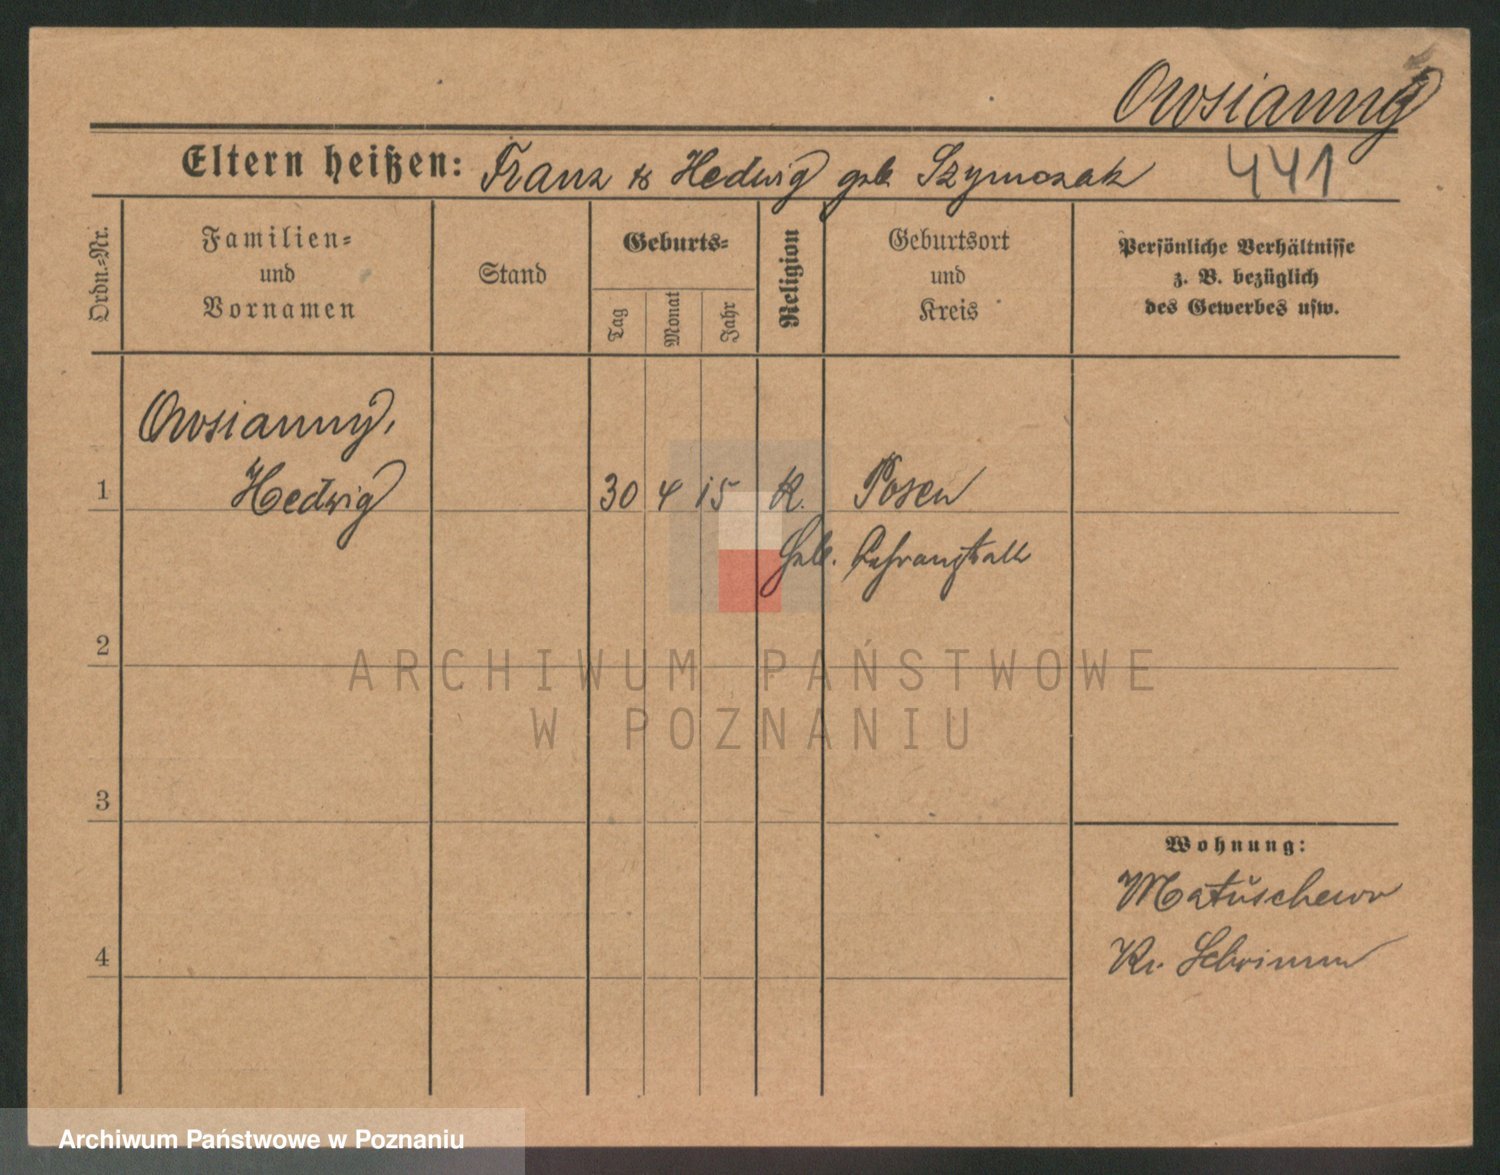 Owsianny
Eltern heißen: Franz & Hedwig geb. Szymczak 441
Ordn.=Nr.
Familien=
und
Vornamen
Stand
Geburts=
Tag
Monat
Jahr
Religion
Geburtsort
und
Kreis
Persönliche Verhältnisse
z. B. bezüglich
des Gewerbes usw.
Owsianny,
1 Hedwig 30 4 15 K. Posen
Geb.
2
3
4
Wohnung:
Matuschewo
Kr. Schrimm
ARCHIWUM PAŃSTWOWE
W POZNANIU
Archiwum Państwowe w Poznaniu